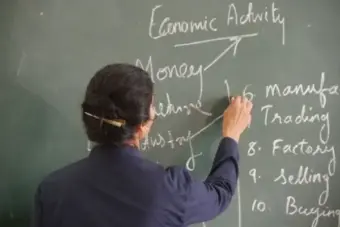 Economic Activity
Money
6 manufa
Trading
8. Factory
9. Selling
10. Buying